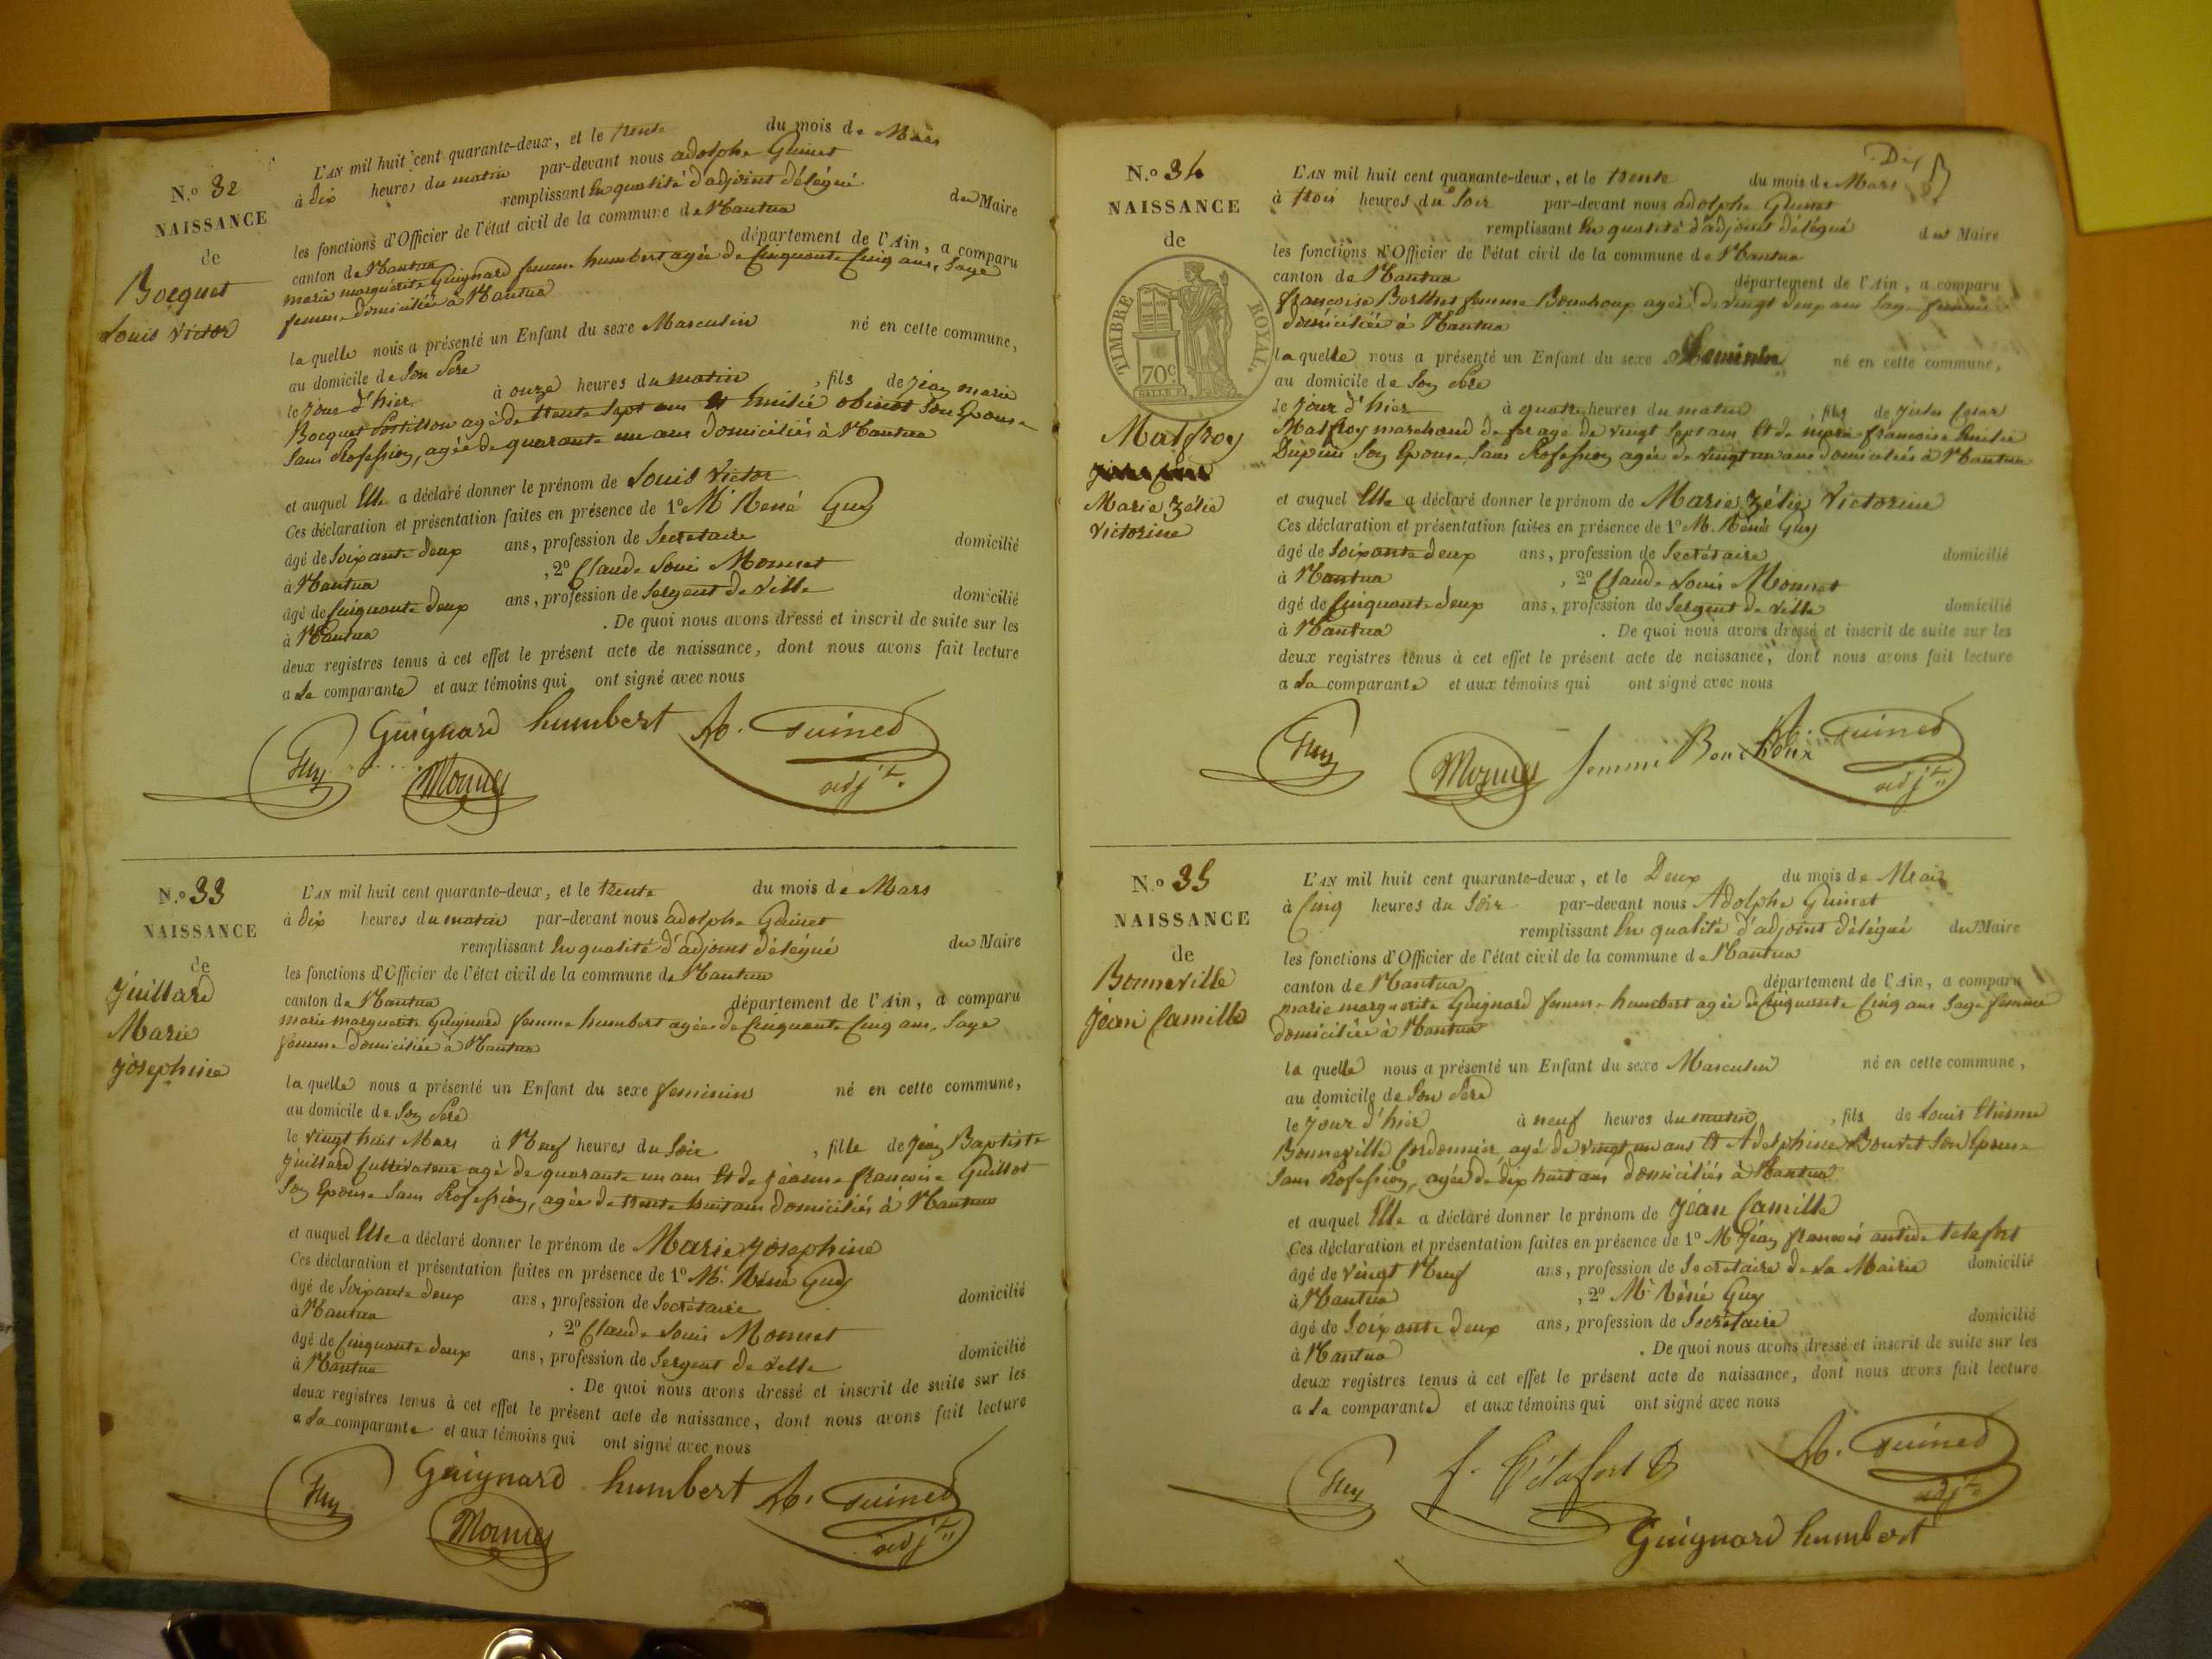 N.º 32
NAISSANCE
de
Bocquet
Louis Victor
L'AN mil huit cent quarante-deux, et le trente du mois de Mars
à dix heures du matin par-devant nous adolphe Guinet
remplissant En qualité d'adjoint délégué du Maire
les fonctions d'Officier de l'état civil de la commune de Nantua
canton de Nantua département de l'Ain, a comparu
marie marguerite Guignard femme humbert agée de Cinquante Cinq ans, Sage
femme domiciliée à Nantua
la quelle nous a présenté un Enfant du sexe Masculin né en cette commune,
au domicile de Son Père
le jour d'hier à onze heures du matin, fils de jean marie
Bocquet Postillon agé de trente Sept ans Et Emilie obinet Son Epouse
Sans Profession, agée de quarante un ans domiciliés à Nantua
et auquel Elle a déclaré donner le prénom de Louis Victor
Ces déclaration et présentation faites en présence de 1º Mr Réné Guy
âgé de Soixante deux ans, profession de Secretaire domicilié
à Nantua, 2º Claude Louis Monnet
âgé de Cinquante deux ans, profession de Sergent de Ville domicilié
à Nantua. De quoi nous avons dressé et inscrit de suite sur les
deux registres tenus à cet effet le présent acte de naissance, dont nous avons fait lecture
a La comparante et aux témoins qui ont signé avec nous
Guignard humbert A. Guinet
Guy Monnet adjt.
N.º 33
NAISSANCE
de
Juillard
Marie
josephine
L'AN mil huit cent quarante-deux, et le trente du mois de Mars
à dix heures du matin par-devant nous adolphe Guinet
remplissant En qualité d'adjoint délégué du Maire
les fonctions d'Officier de l'état civil de la commune de Nantua
canton de Nantua département de l'Ain, a comparu
marie marguerite Guignard femme humbert agée de Cinquante Cinq ans, Sage
femme domiciliée à Nantua
la quelle nous a présenté un Enfant du sexe feminin né en cette commune,
au domicile de Son Père
le vingt huit Mars à Neuf heures du Soir, fille de jean Baptiste
Juillard Cultivateur agé de quarante un ans Et de jeanne françoise Guillot
Son Epouse Sans Profession, agée de trente huit ans domiciliés à Nantua
et auquel Elle a déclaré donner le prénom de Marie josephine
Ces déclaration et présentation faites en présence de 1º Mr. Réné Guy
âgé de Soixante deux ans, profession de Secrétaire domicilié
à Nantua, 2º Claude Louis Monnet
âgé de Cinquante deux ans, profession de Sergent de Ville domicilié
à Nantua. De quoi nous avons dressé et inscrit de suite sur les
deux registres tenus à cet effet le présent acte de naissance, dont nous avons fait lecture
a La comparante et aux témoins qui ont signé avec nous
Guignard humbert A. Guinet
Guy Monnet adjt.
N.º 34
NAISSANCE
de
TIMBRE ROYAL.
70c
Matfroy
Marie Zélie
Victorine
L'AN mil huit cent quarante-deux, et le trente du mois de Mars
à trois heures du Soir par-devant nous adolphe Guinet
remplissant En qualité d'adjoint délégué du Maire
les fonctions d'Officier de l'état civil de la commune de Nantua
canton de Nantua département de l'Ain, a comparu
françoise Berthet femme Bouchoux agée de vingt deux ans Sage femme
domiciliée à Nantua
la quelle nous a présenté un Enfant du sexe Feminin né en cette commune,
au domicile de Son Père
le jour d'hier à quatre heures du matin, fils de jules Cesar
Matfroy marchand de fer agé de vingt Sept ans Et de marie françoise Emilie
Dupuis Son Epouse, Sans Profession agée de vingt un ans domiciliés à Nantua
et auquel Elle a déclaré donner le prénom de Marie Zélie Victorine
Ces déclaration et présentation faites en présence de 1º M. Réné Guy
âgé de Soixante deux ans, profession de Secrétaire domicilié
à Nantua, 2º Claude Louis Monnet
âgé de Cinquante deux ans, profession de Sergent de Ville domicilié
à Nantua. De quoi nous avons dressé et inscrit de suite sur les
deux registres tenus à cet effet le présent acte de naissance, dont nous avons fait lecture
a La comparante et aux témoins qui ont signé avec nous
Guy Monnet femme Bouchoux A. Guinet
adjt.
N.º 35
NAISSANCE
de
Bonneville
Jean Camille
L'AN mil huit cent quarante-deux, et le Deux du mois de
à Cinq heures du Soir par-devant nous Adolphe Guinet
remplissant En qualité d'adjoint délégué du Maire
les fonctions d'Officier de l'état civil de la commune de Nantua
canton de Nantua département de l'Ain, a comparu
marie marguerite Guignard femme humbert agée de Cinquante Cinq ans Sage femme
domiciliée à Nantua
la quelle nous a présenté un Enfant du sexe Masculin né en cette commune,
au domicile de Son Père
le jour d'hier à neuf heures du matin, fils de Louis Etienne
Bonneville Cordonnier, agé de vingt un ans Et Adelphine Bouvet Son Epouse
Sans Profession, agée de dix huit ans domiciliés à Nantua
et auquel Elle a déclaré donner le prénom de Jean Camille
Ces déclaration et présentation faites en présence de 1º Mr jean francois antide Telafort
âgé de vingt Neuf ans, profession de Secretaire de La Mairie domicilié
à Nantua, 2º Mr Réné Guy
âgé de Soixante deux ans, profession de Secrétaire domicilié
à Nantua. De quoi nous avons dressé et inscrit de suite sur les
deux registres tenus à cet effet le présent acte de naissance, dont nous avons fait lecture
a La comparante et aux témoins qui ont signé avec nous
Guy A. Guinet
adjt.
Guignard humbert